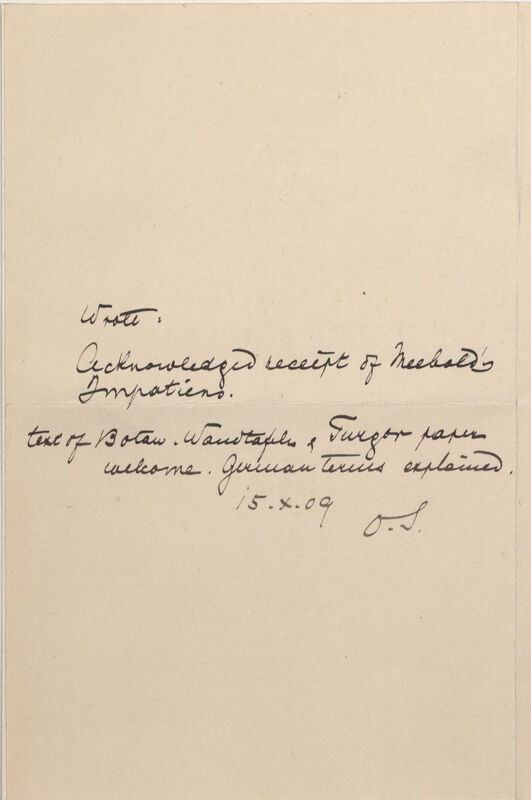 Wrote:
Acknowledged receipt of Meebold's
Impatiens.
text of Botan. Wandtafeln & Turgor paper
welcome. German terms explained.
15.X.09
O.S.